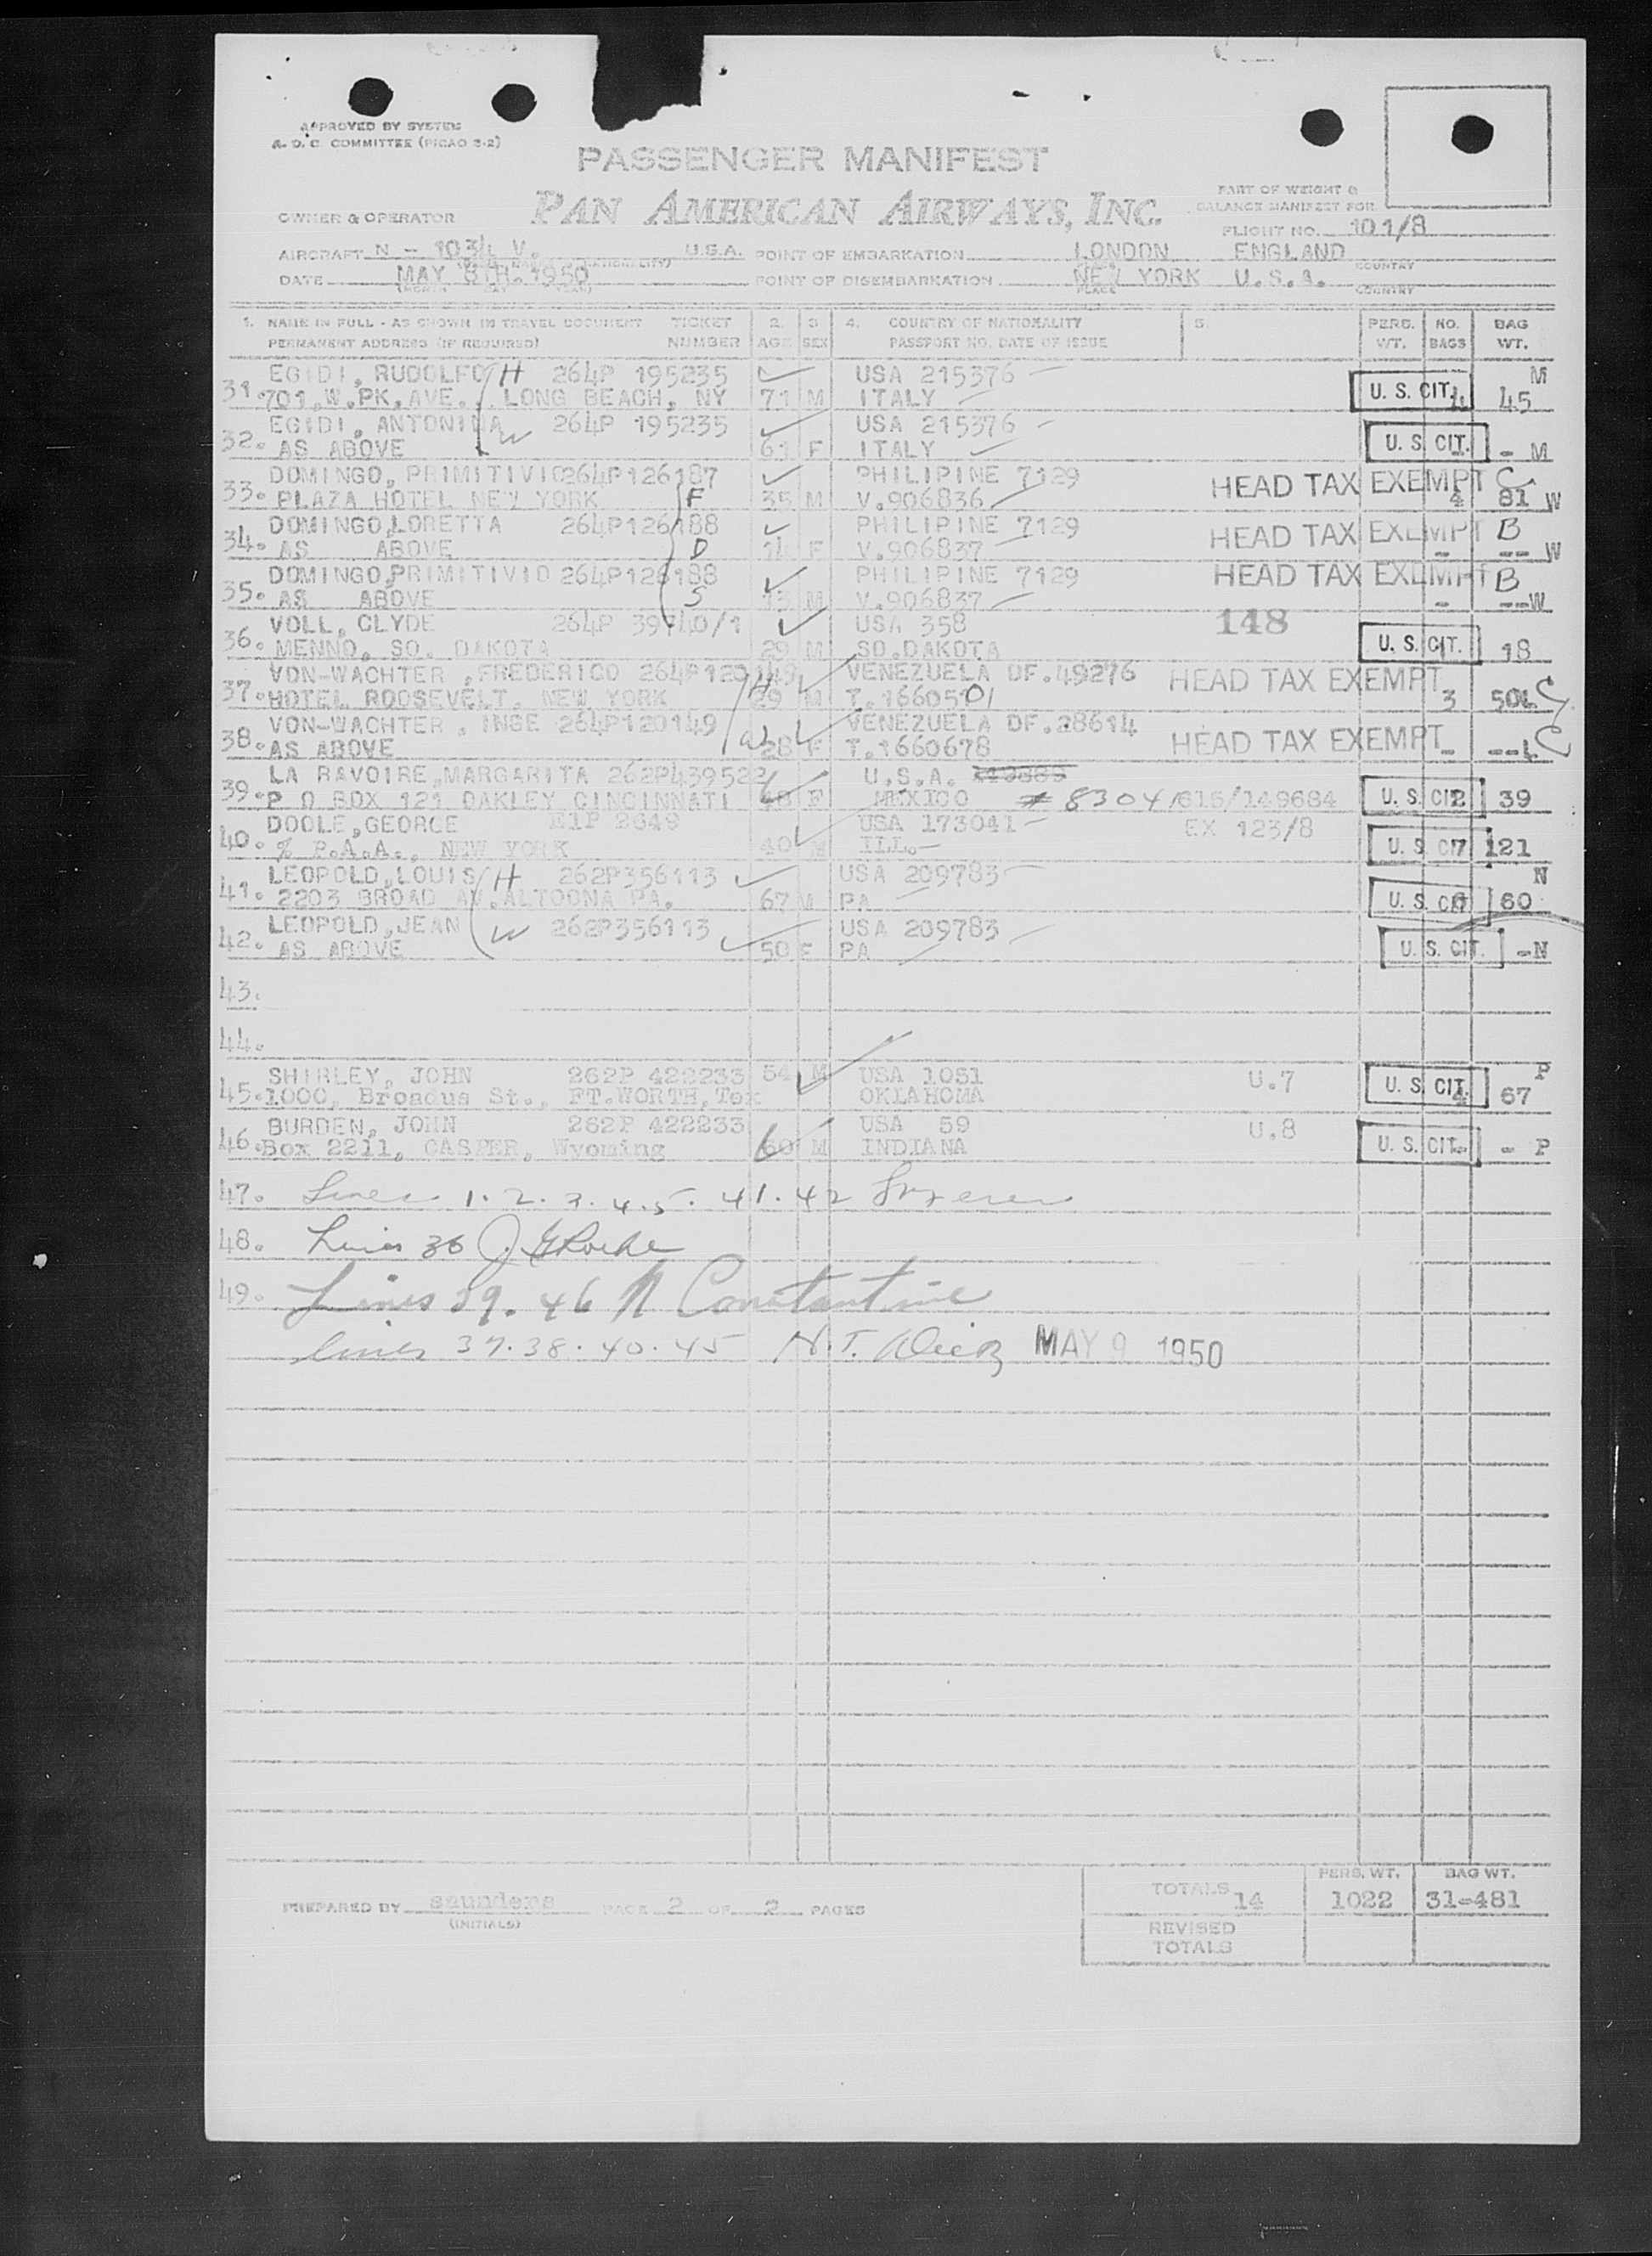 APPROVED BY SYSTEM
A. O. C. COMMITTEE (PICAO 3-2)
PASSENGER MANIFEST
PART OF WEIGHT &
BALANCE MANIFEST FOR
OWNER & OPERATOR PAN AMERICAN AIRWAYS, INC.
FLIGHT NO. 101/8
AIRCRAFT N - 1034 V. U.S.A. POINT OF EMBARKATION LONDON ENGLAND
DATE MAY 8TH. 1950 POINT OF DISEMBARKATION NEW YORK U.S.A.
PLACE COUNTRY
1. NAME IN FULL - AS SHOWN IN TRAVEL DOCUMENT TICKET 2. 3 4. COUNTRY OF NATIONALITY 5. PERS. NO. BAG
PERMANENT ADDRESS (IF REQUIRED) NUMBER AGE SEX PASSPORT NO. DATE OF ISSUE WT. BAGS WT.
EGIDI, RUDOLFO H 264P 195235 USA 215376 M
31. 701.W.PK.AVE.. LONG BEACH, NY 71 M ITALY U. S. CIT. 4 45
EGIDI, ANTONINA W 264P 195235 USA 215376
32. AS ABOVE 61 F ITALY U. S. CIT. - M
DOMINGO, PRIMITIVIO 264P126187 PHILIPINE 7129 HEAD TAX EXEMPT C
33. PLAZA HOTEL NEW YORK F 35 M V.906836 4 81 W
DOMINGO,LORETTA 264P126188 PHILIPINE 7129 HEAD TAX EXEMPT B
34. AS ABOVE D 14 F V.906837 - -- W
DOMINGO,PRIMITIVIO 264P126188 PHILIPINE 7129 HEAD TAX EXEMPT B
35. AS ABOVE S 13 M V.906837 - --W
VOLL, CLYDE 264P 39740/1 USA 358 148
36. MENNO, SO. DAKOTA 29 M SO.DAKOTA U. S. CIT. 18
VON-WACHTER ,FREDERICO 264P120149 VENEZUELA DF.49276 HEAD TAX EXEMPT
37. HOTEL ROOSEVELT, NEW YORK H 29 M T.1660501 3 50 L C
VON-WACHTER , INGE 264P120149 VENEZUELA DF.28614
38. AS ABOVE W 28 F T.1660678 HEAD TAX EXEMPT - --L C
LA RAVOIRE,MARGARITA 262P439522 U.S.A.
39. P O BOX 121 OAKLEY CINCINNATI 48 F MEXICO # 83041 616/149684 U. S. CIT. 2 39
DOOLE,GEORGE E1P 2649 USA 173041 EX 123/8
40. % P.A.A., NEW YORK 40 M ILL. U. S. CIT. 7 121
LEOPOLD,LOUIS H 262P356113 USA 209783 N
41. 2203 BROAD AV.ALTOONA PA. 67 M PA U. S. CIT. 60
LEOPOLD,JEAN W 262P356113 USA 209783
42. AS ABOVE 50 F PA U. S. CIT. -N
43.
44.
SHIRLEY, JOHN 262P 422233 54 M USA 1051 U.7 P
45. 1000, Broadus St., FT.WORTH,Tex OKLAHOMA U. S. CIT. 4 67
BURDEN, JOHN 262P 422233 USA 59 U.8
46. Box 2211, CASPER, Wyoming 60 M INDIANA U. S. CIT. - - P
47. Lines 1. 2. 3. 4. 5. 41. 42
48. Lines 36 J
49. Lines 39. 46 N Constantine
lines 37. 38. 40. 45 N.T. MAY 9 1950
TOTALS 14 PERS. WT. 1022 BAG WT. 31-481
PREPARED BY saunders PAGE 2 OF 2 PAGES
(INITIALS)
REVISED
TOTALS